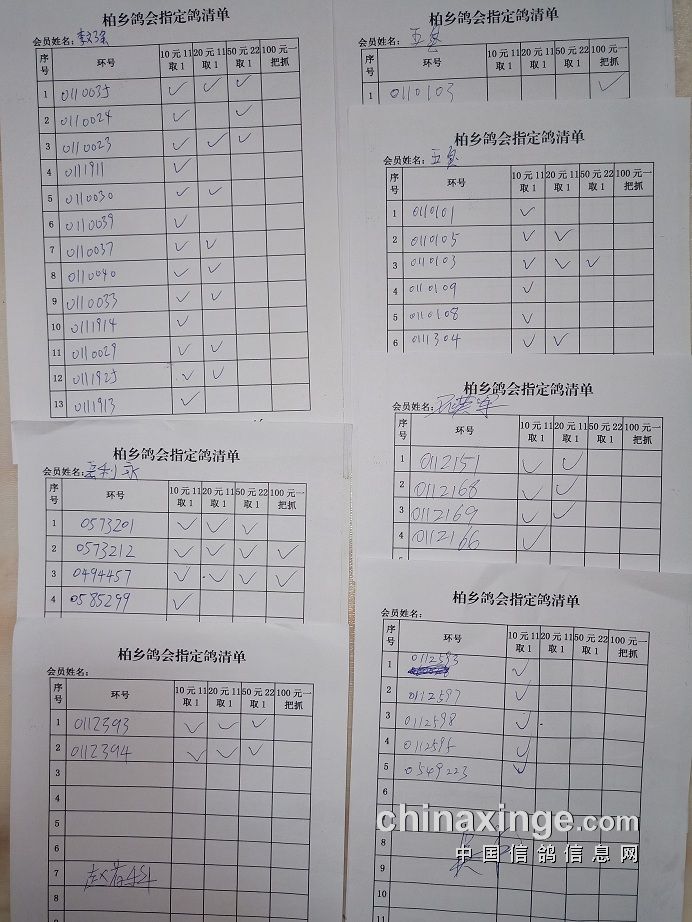 柏乡鸽会指定鸽清单
会员姓名：
序号 环号 10元11取1 20元11取1 50元22取1 100元一把抓
1 0110035 ✓ ✓ ✓
2 0110024 ✓ ✓
3 0110023 ✓ ✓ ✓
4 0111911 ✓
5 0110030 ✓ ✓
6 0110039 ✓
7 0110037 ✓ ✓
8 0110040 ✓ ✓
9 0110033 ✓ ✓
10 0111914 ✓
11 0110029 ✓ ✓
12 0111925 ✓ ✓
13 0111913 ✓
柏乡鸽会指定鸽清单
会员姓名：
序号 环号 10元11取1 20元11取1 50元22取1 100元一把抓
1 0110103 ✓
柏乡鸽会指定鸽清单
会员姓名：
序号 环号 10元11取1 20元11取1 50元22取1 100元一把抓
1 0110101 ✓
2 0110105 ✓ ✓
3 0110103 ✓ ✓ ✓
4 0110109 ✓
5 0110108 ✓
6 0111304 ✓ ✓
柏乡鸽会指定鸽清单
会员姓名：
序号 环号 10元11取1 20元11取1 50元22取1 100元一把抓
1 0112151 ✓ ✓
2 0112168 ✓ ✓
3 0112169 ✓ ✓
4 0112166 ✓
柏乡鸽会指定鸽清单
会员姓名：
序号 环号 10元11取1 20元11取1 50元22取1 100元一把抓
1 0573201 ✓ ✓ ✓
2 0573212 ✓ ✓ ✓ ✓
3 0494457 ✓ ✓ ✓ ✓
4 0585299 ✓
柏乡鸽会指定鸽清单
会员姓名：
序号 环号 10元11取1 20元11取1 50元22取1 100元一把抓
1 0112393 ✓ ✓ ✓
2 0112394 ✓ ✓ ✓
3
4
5
6
7
8
柏乡鸽会指定鸽清单
会员姓名：
序号 环号 10元11取1 20元11取1 50元22取1 100元一把抓
1 0112593 ✓
2 0112597 ✓
3 0112598 ✓
4 ✓
5 0549223 ✓
6
8
9
10
11
chinaxinge.com
中国信鸽信息网